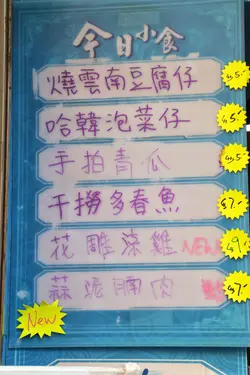 今日小食
燒雲南豆腐仔 45.-
哈韓泡菜仔 45.-
手拍青瓜 45.-
干撈多春魚 57.-
花雕菜雞 NEW 49.-
蒜泥腩肉 57.-
New